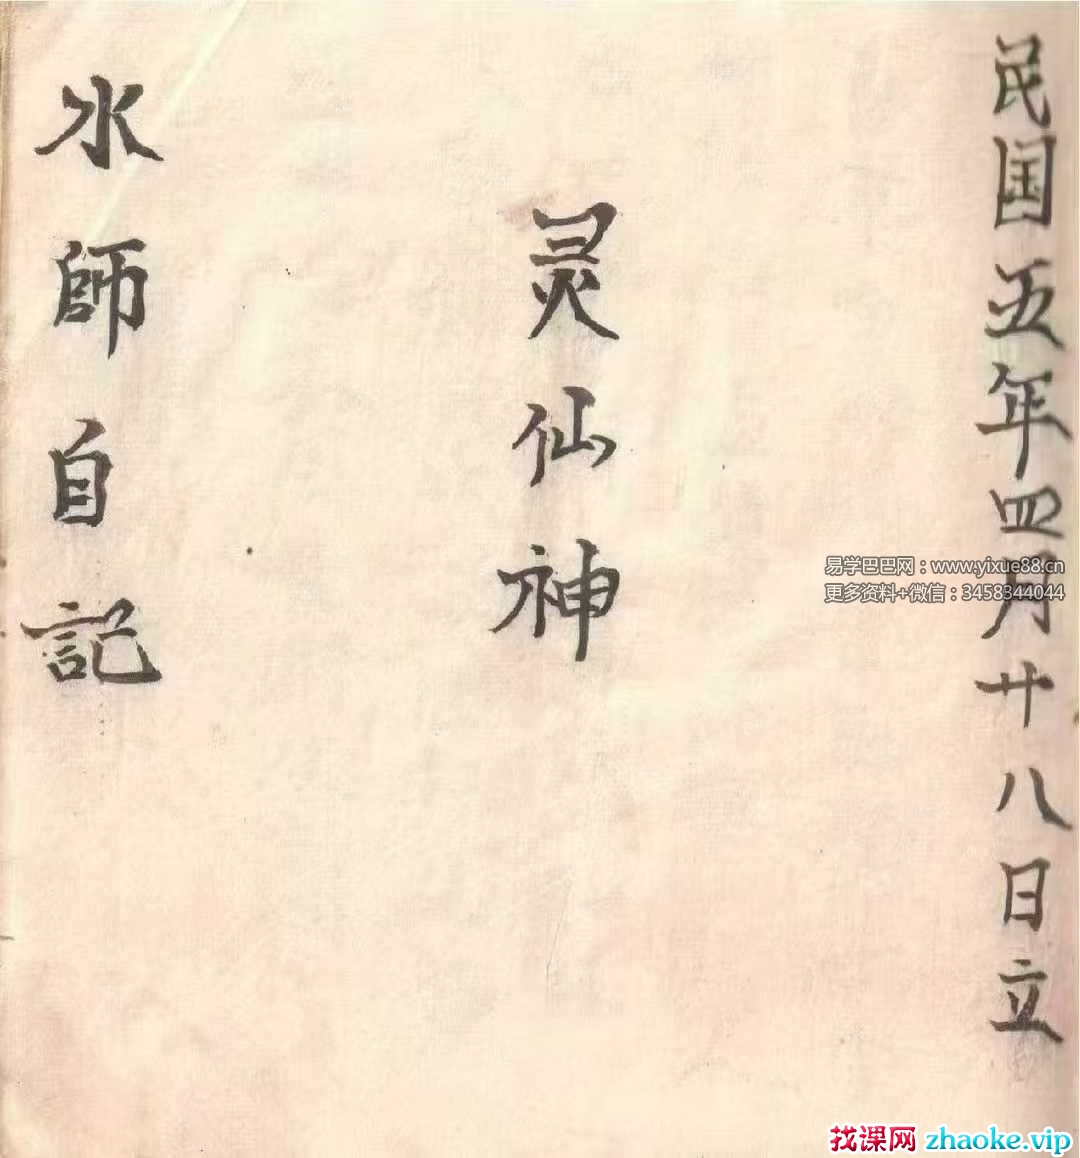 民国五年四月廿八日立
灵仙神
水師自記
易学巴巴网：www.yixue88.cn
更多资料+微信：3458344044
找课网 zhaoke.vip